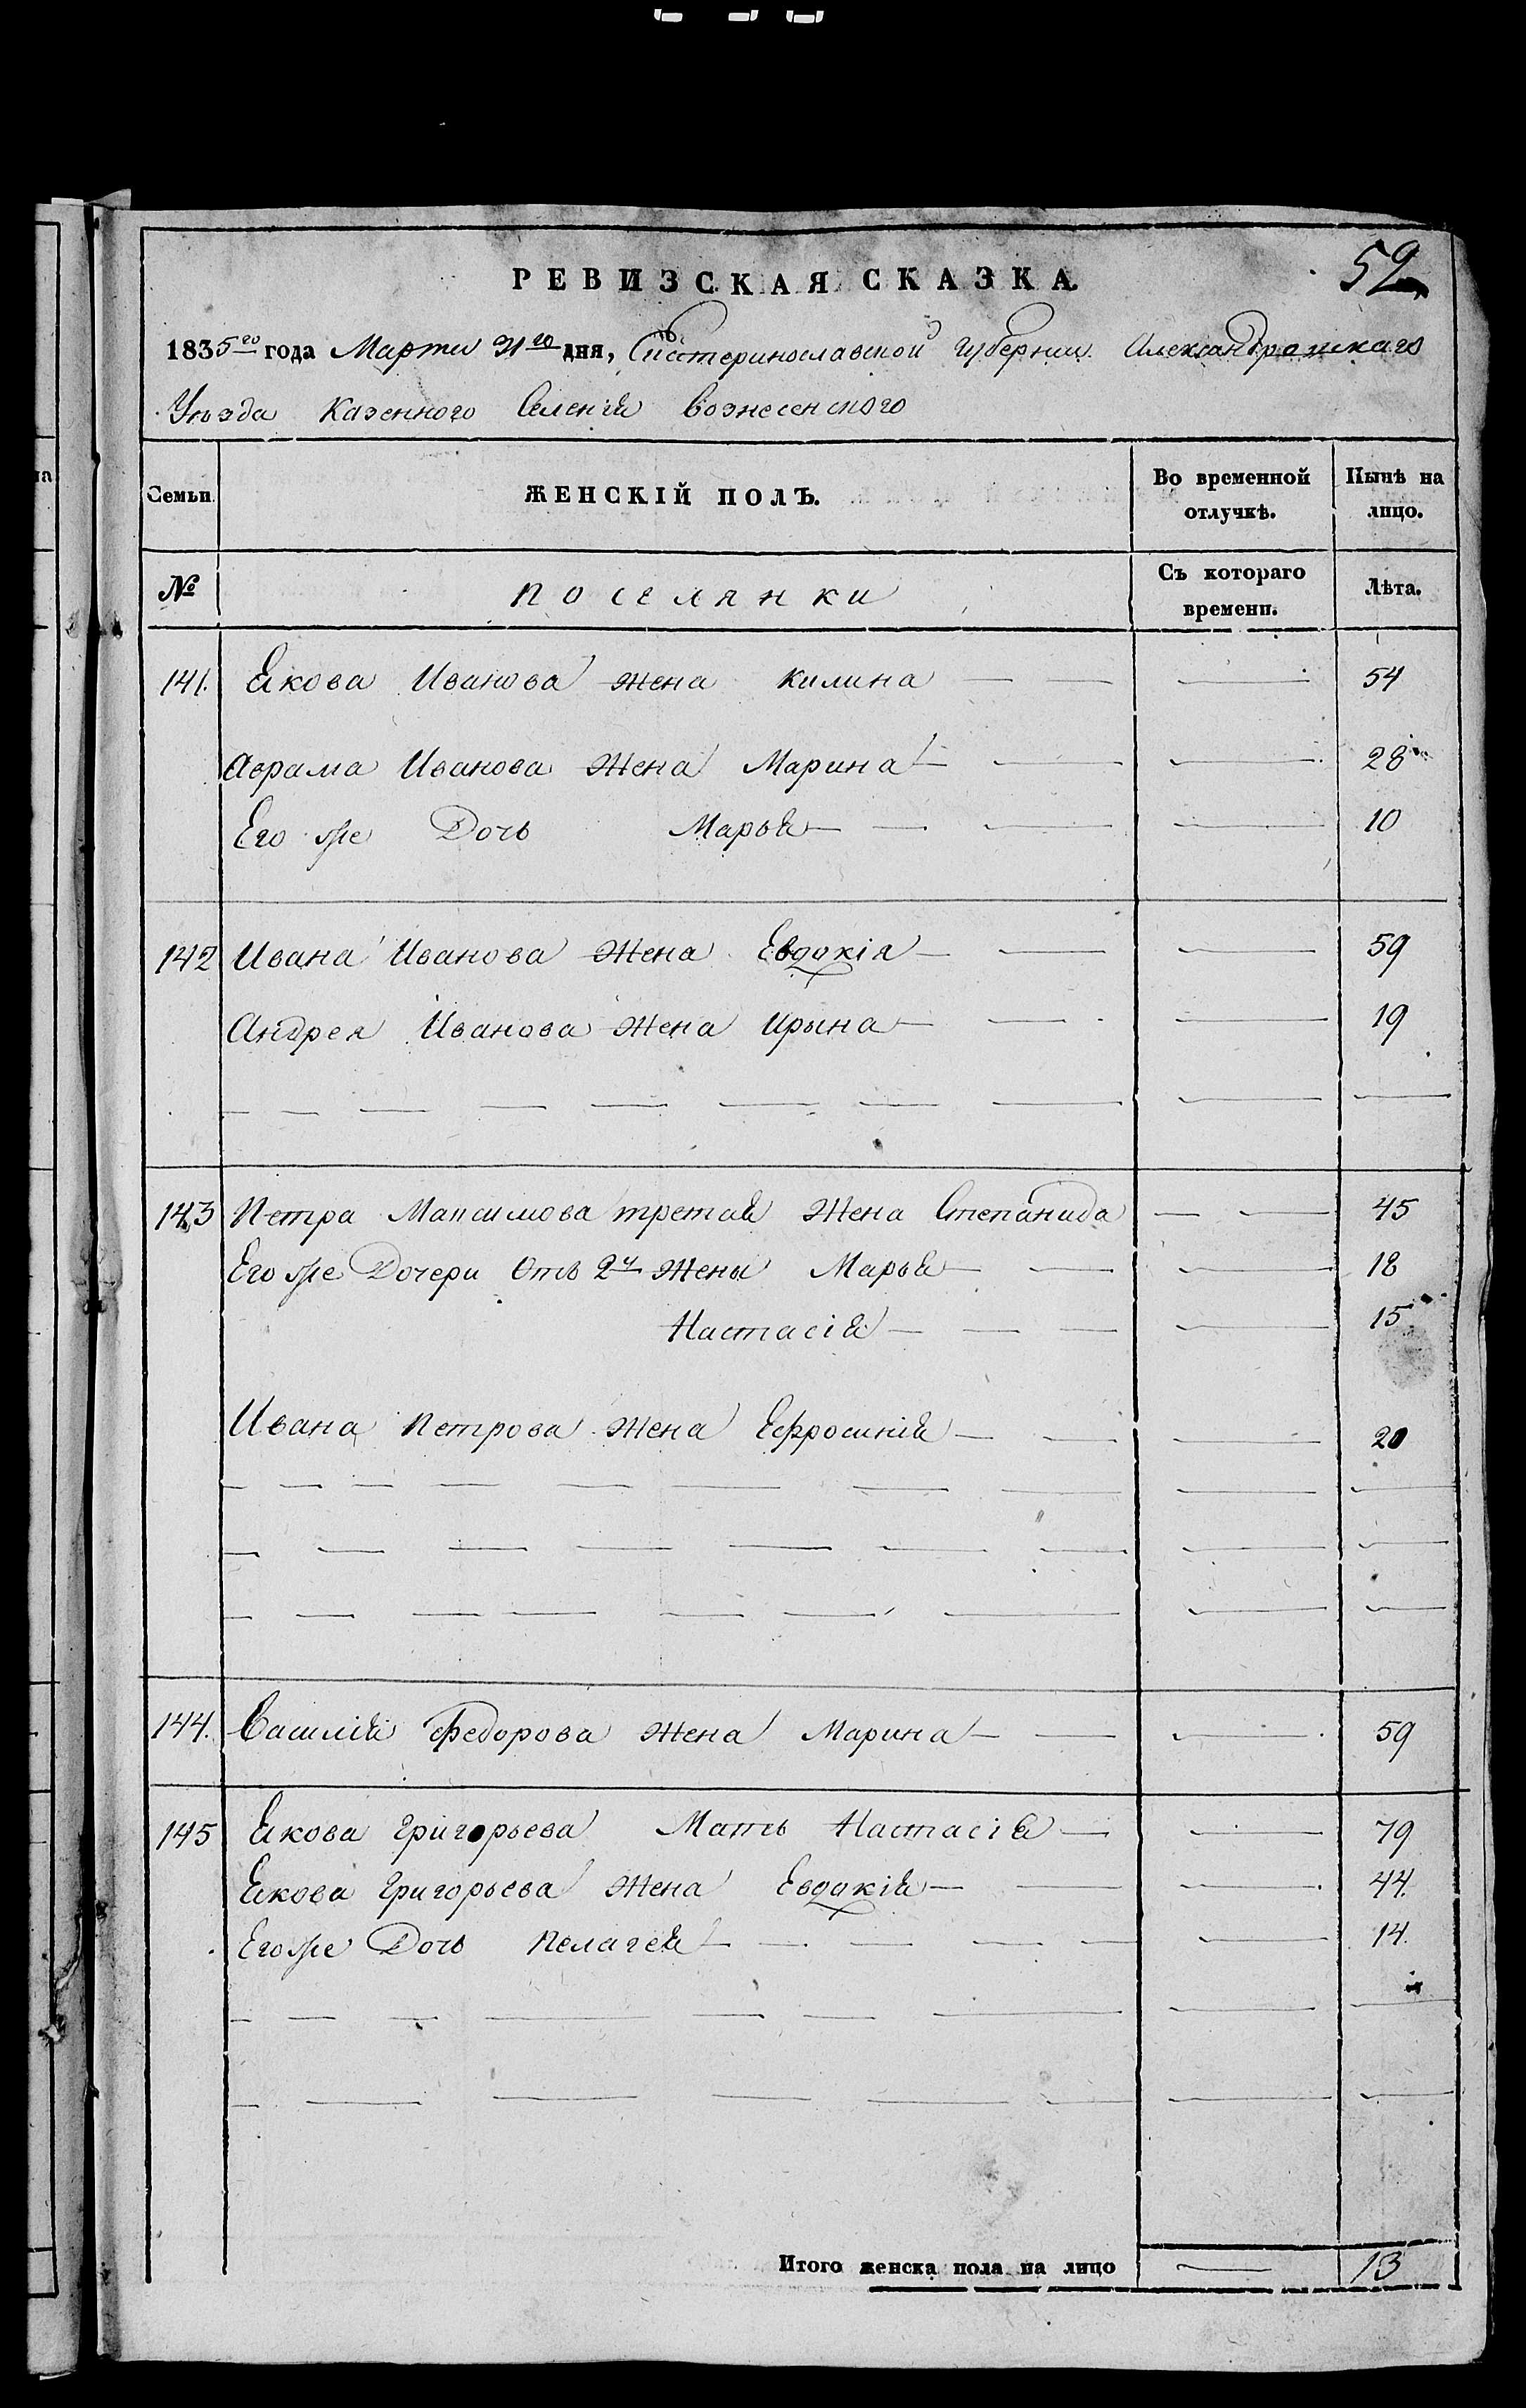 РЕВИЗСКАЯ СКАЗКА. 52
1835го года Марта 31го дня, Екатеринославской Губернии Александровскаго
Уезда Казенного Селенія Вознесенского
Семьи. ЖЕНСКІЙ ПОЛЪ. Во временной отлучкѣ. Нынѣ на лицо.
№ Поселянки Съ котораго времени. Лѣта.
141. Якова Иванова жена Килина 54
Аврама Иванова жена Марина 28
Его же Дочь Марья 10
142 Ивана Иванова жена Евдокія 59
Андрея Иванова жена Ирына 19
143 Петра Максимова третая жена Степанида 45
Его же Дочери отъ 2й жены Марья 18
Настасія 15
Ивана Петрова жена Ефросинія 20
144. Василія Федорова жена Марина 59
145 Якова Григорьева Мать Настасія 79
Якова Григорьева жена Евдокія 44.
Его же Дочь Пелагея 14.
Итого женска пола на лицо 13